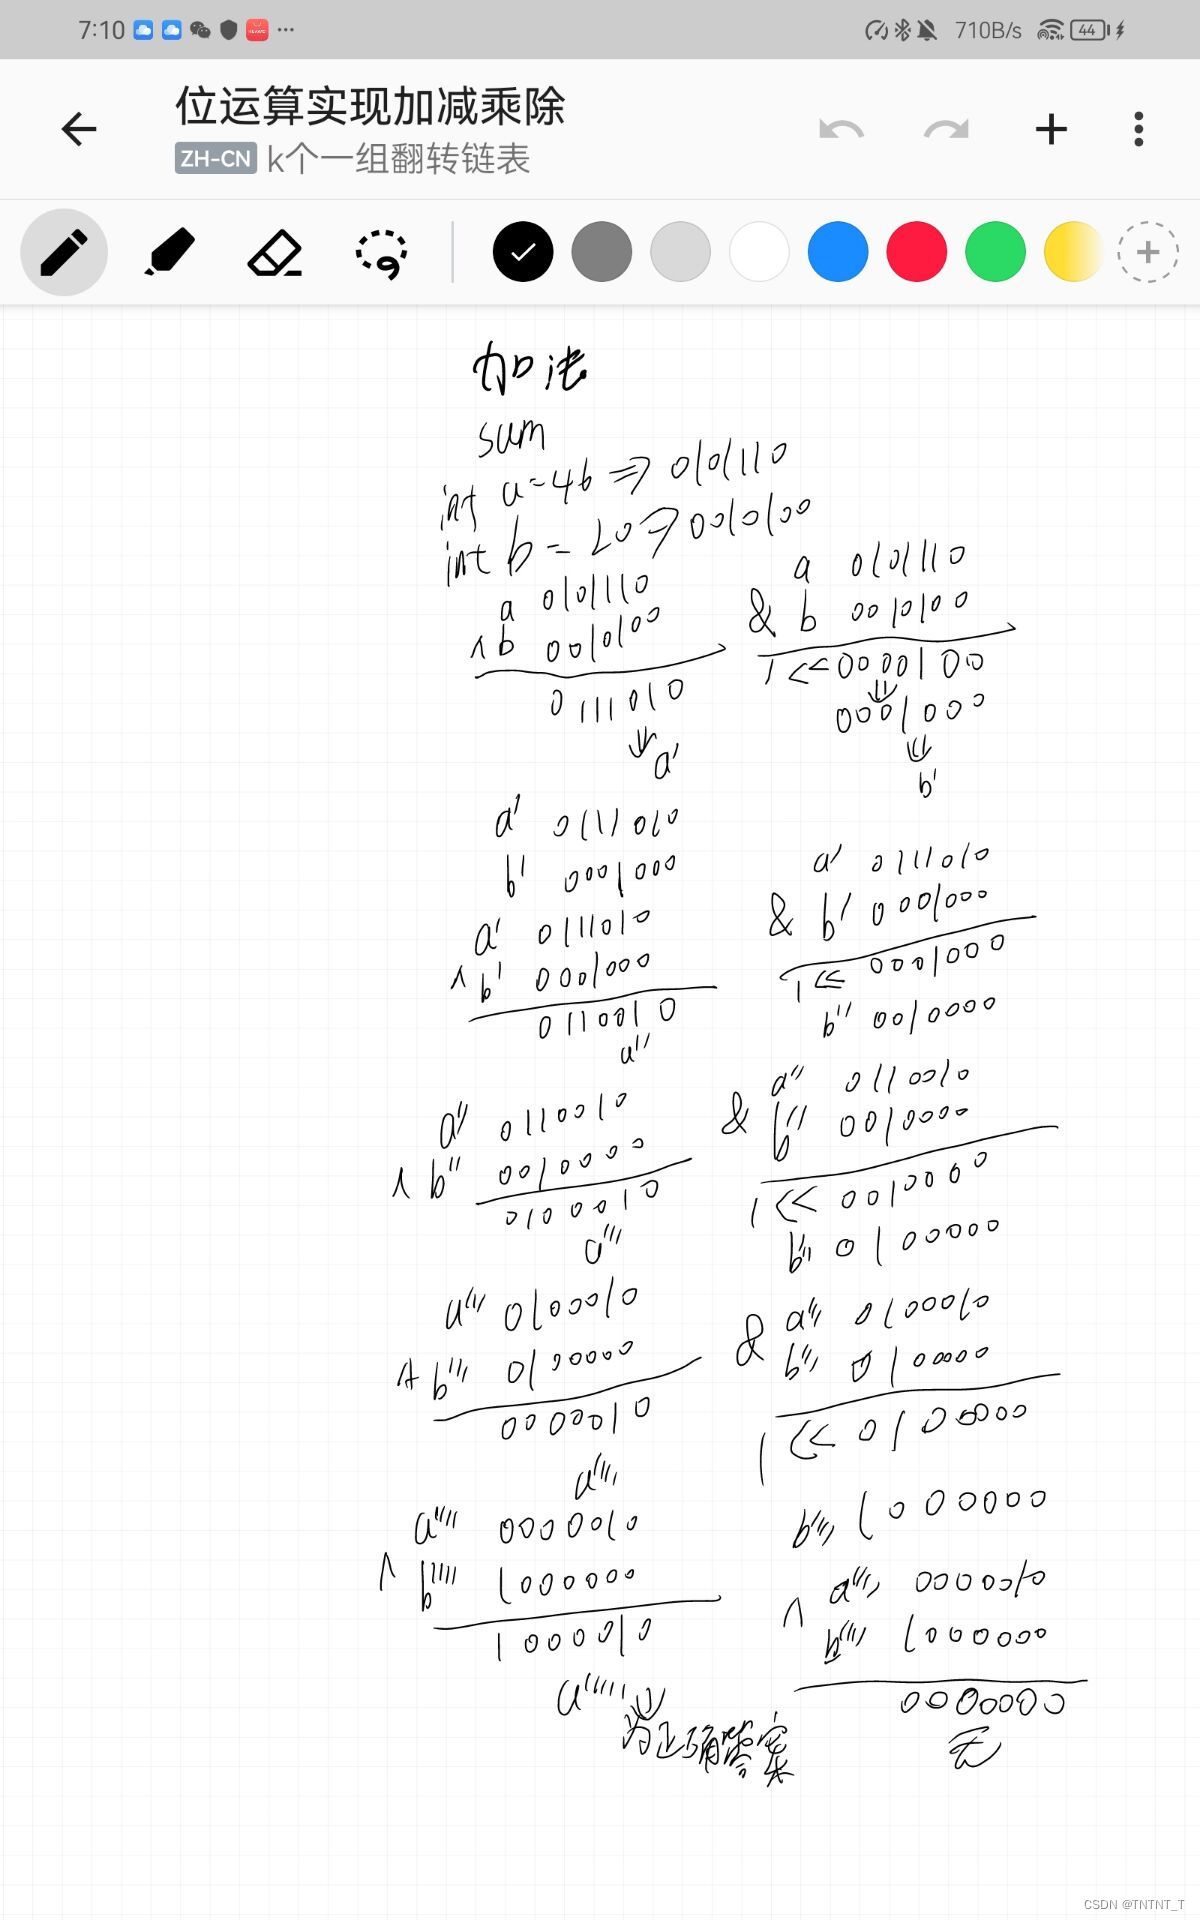 7:10 710B/s 44
位运算实现加减乘除
ZH-CN k个一组翻转链表
加法
sum
int a=46 => 0101110
int b = 20 => 0010100
a 0101110
^ b 0010100
0111010
a'
a 0101110
& b 0010100
1 << 0000100
0001000
b'
a' 0111010
b' 0001000
a' 0111010
^ b' 0001000
0110010
a''
a' 0111010
& b' 0001000
1 << 0001000
b'' 0010000
a'' 0110010
^ b'' 0010000
0100010
a'''
a'' 0110010
& b'' 0010000
1 << 0010000
b''' 0100000
a''' 0100010
^ b''' 0100000
0000010
a''''
a''' 0100010
& b''' 0100000
1 << 0100000
b'''' 1000000
a'''' 0000010
^ b'''' 1000000
1000010
a'''''
为正确答案
a'''' 0000010
^ b'''' 1000000
0000000
无
CSDN @TNTNT_T